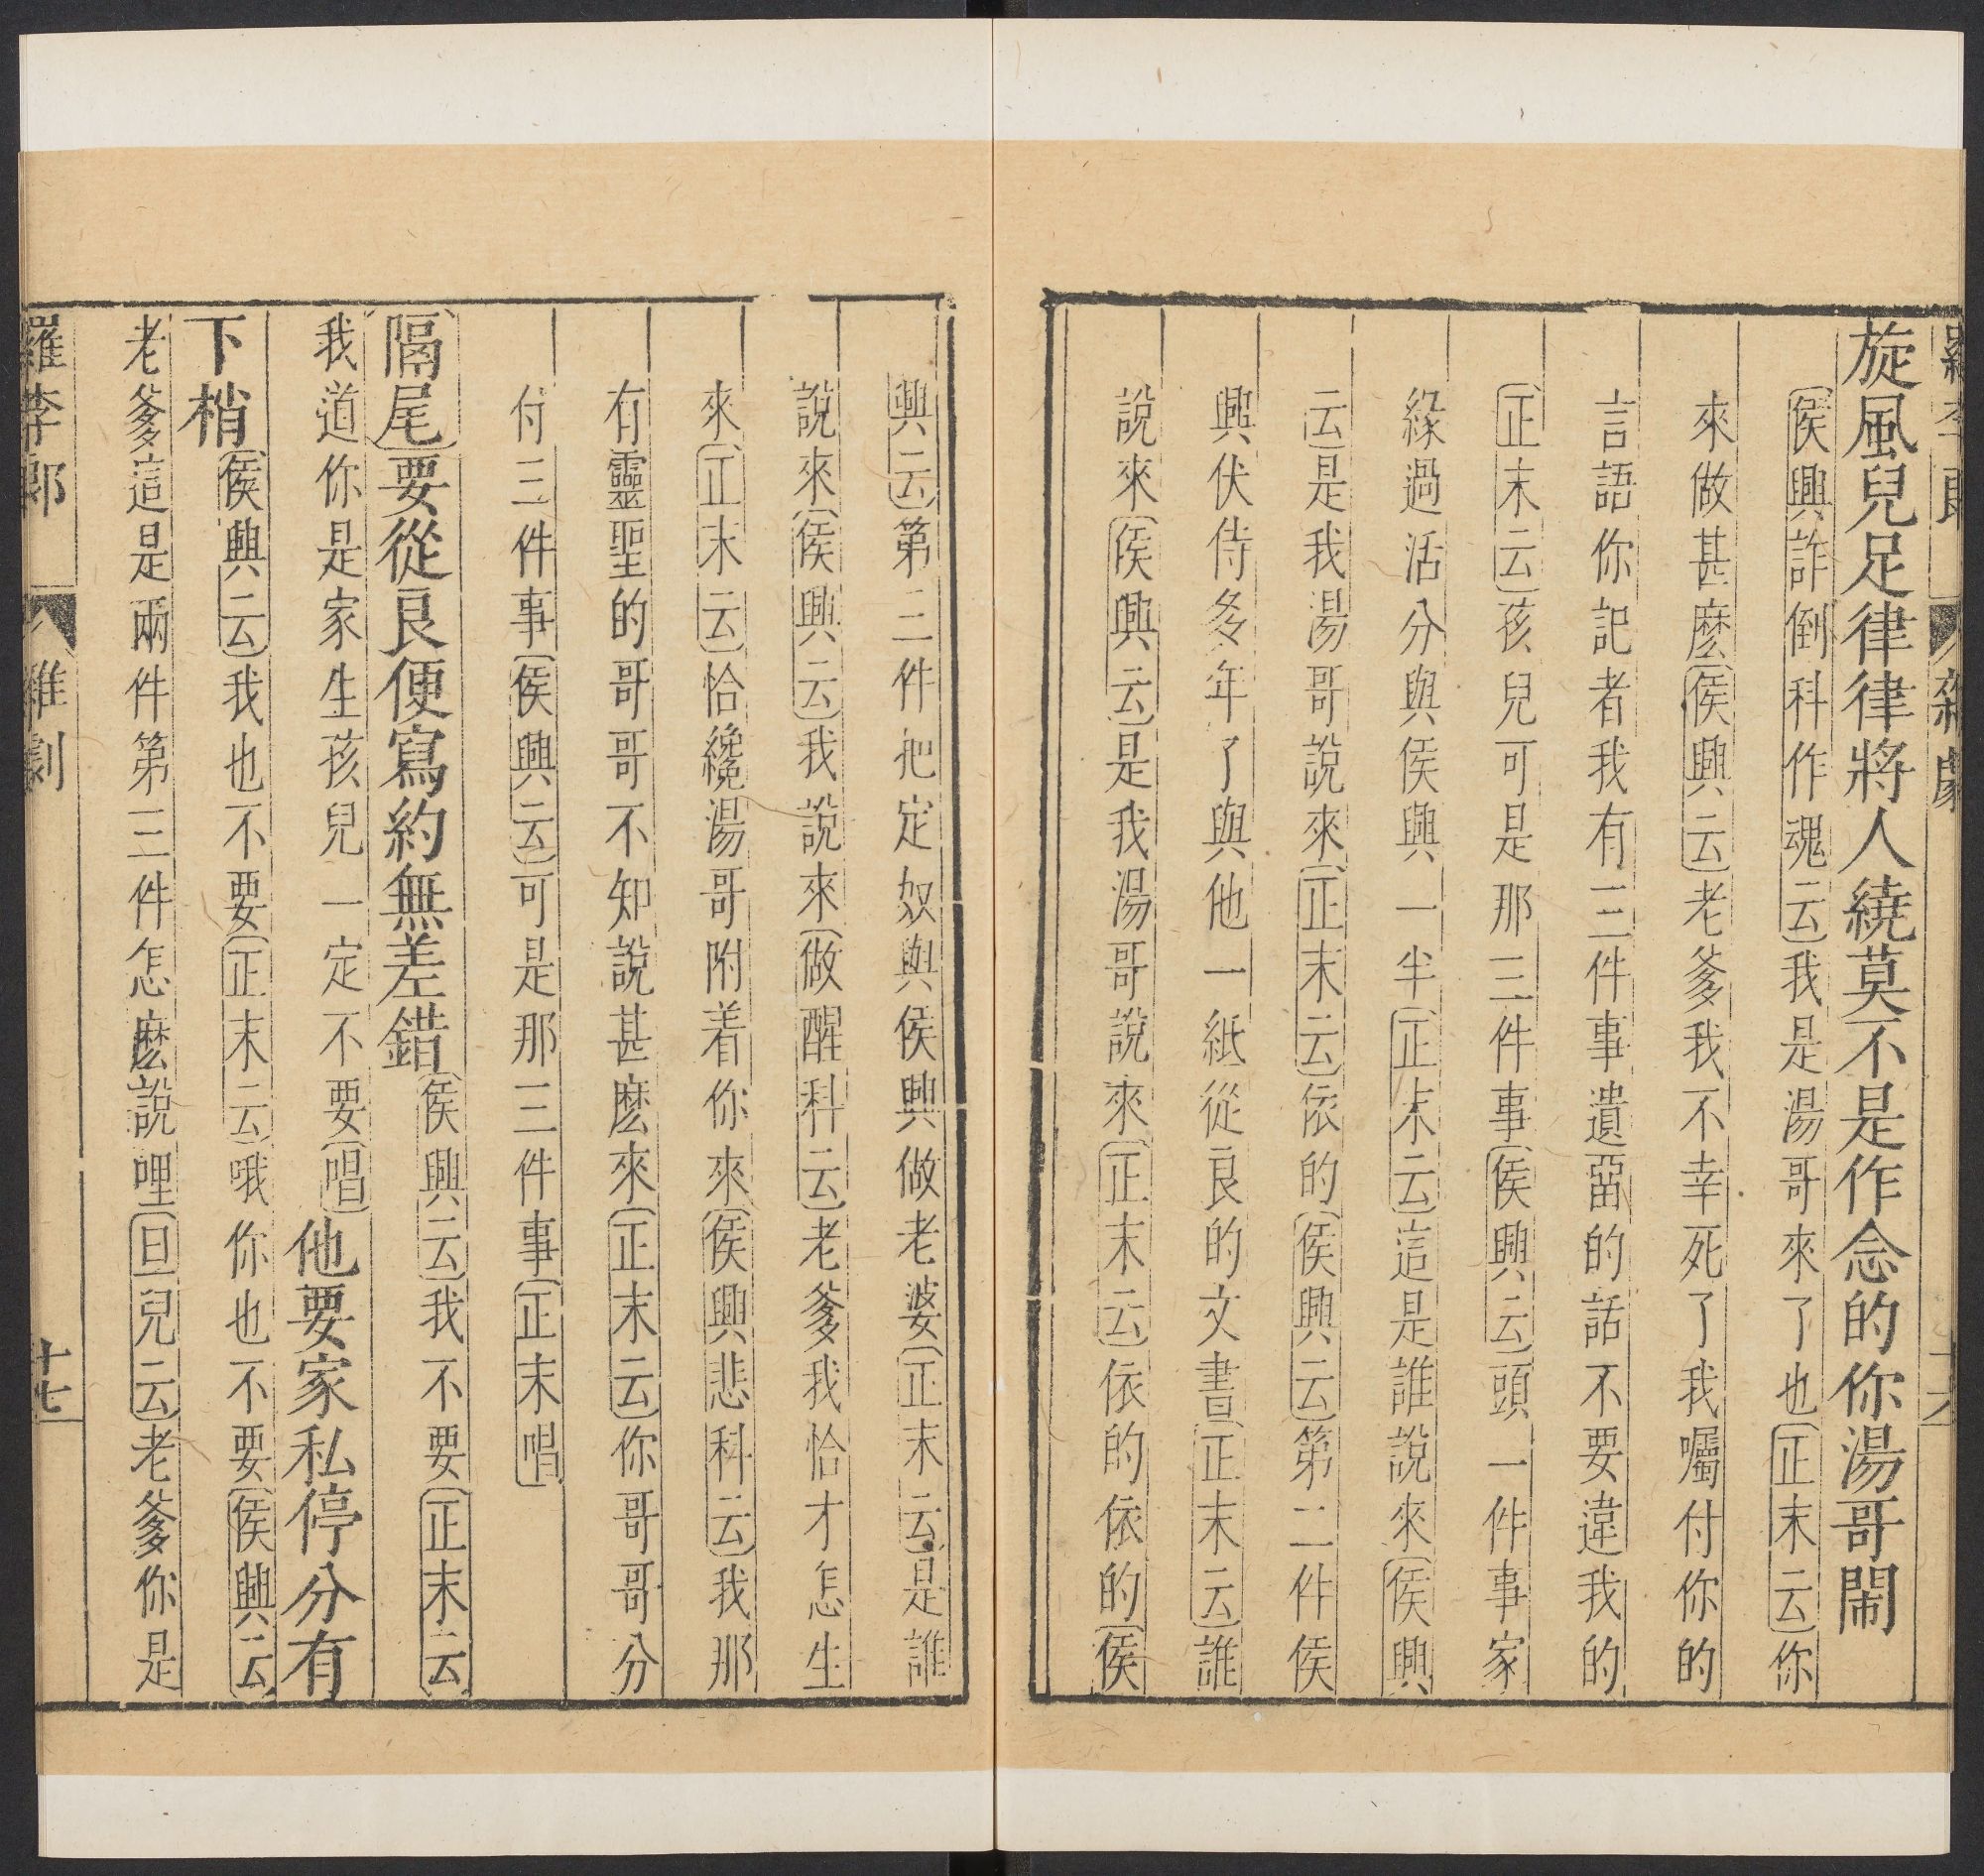 羅李郎 雜劇
旋風兒足律律將人繞莫不是作念的你湯哥鬧
侯興詐倒科作魂云我是湯哥來了也正末云你
來做甚麼侯興云老爹我不幸死了我囑付你的
言語你記者我有三件事遺留的話不要違我的
正末云孩兒可是那三件事侯興云頭一件事家
緣過活分與侯興一半正末云這是誰說來侯興
云是我湯哥說來正末云依的侯興云第二件侯
興伏侍多年了與他一紙從良的文書正末云誰
說來侯興云是我湯哥說來正末云依的依的侯
興云第三件把定奴與侯興做老婆正末云是誰
說來侯興云我說來做醒科云老爹我恰才怎生
來正末云恰纔湯哥附着你來侯興悲科云我那
有靈聖的哥哥不知說甚麼來正末云你哥哥分
付三件事侯興云可是那三件事正末唱
隔尾要從良便寫約無差錯侯興云我不要正末云
我道你是家生孩兒一定不要唱他要家私停分有
下梢侯興云我也不要正末云哦你也不要侯興云
老爹這是兩件第三件怎麽說哩旦兒云老爹你是
羅李郎 雜劇 十七